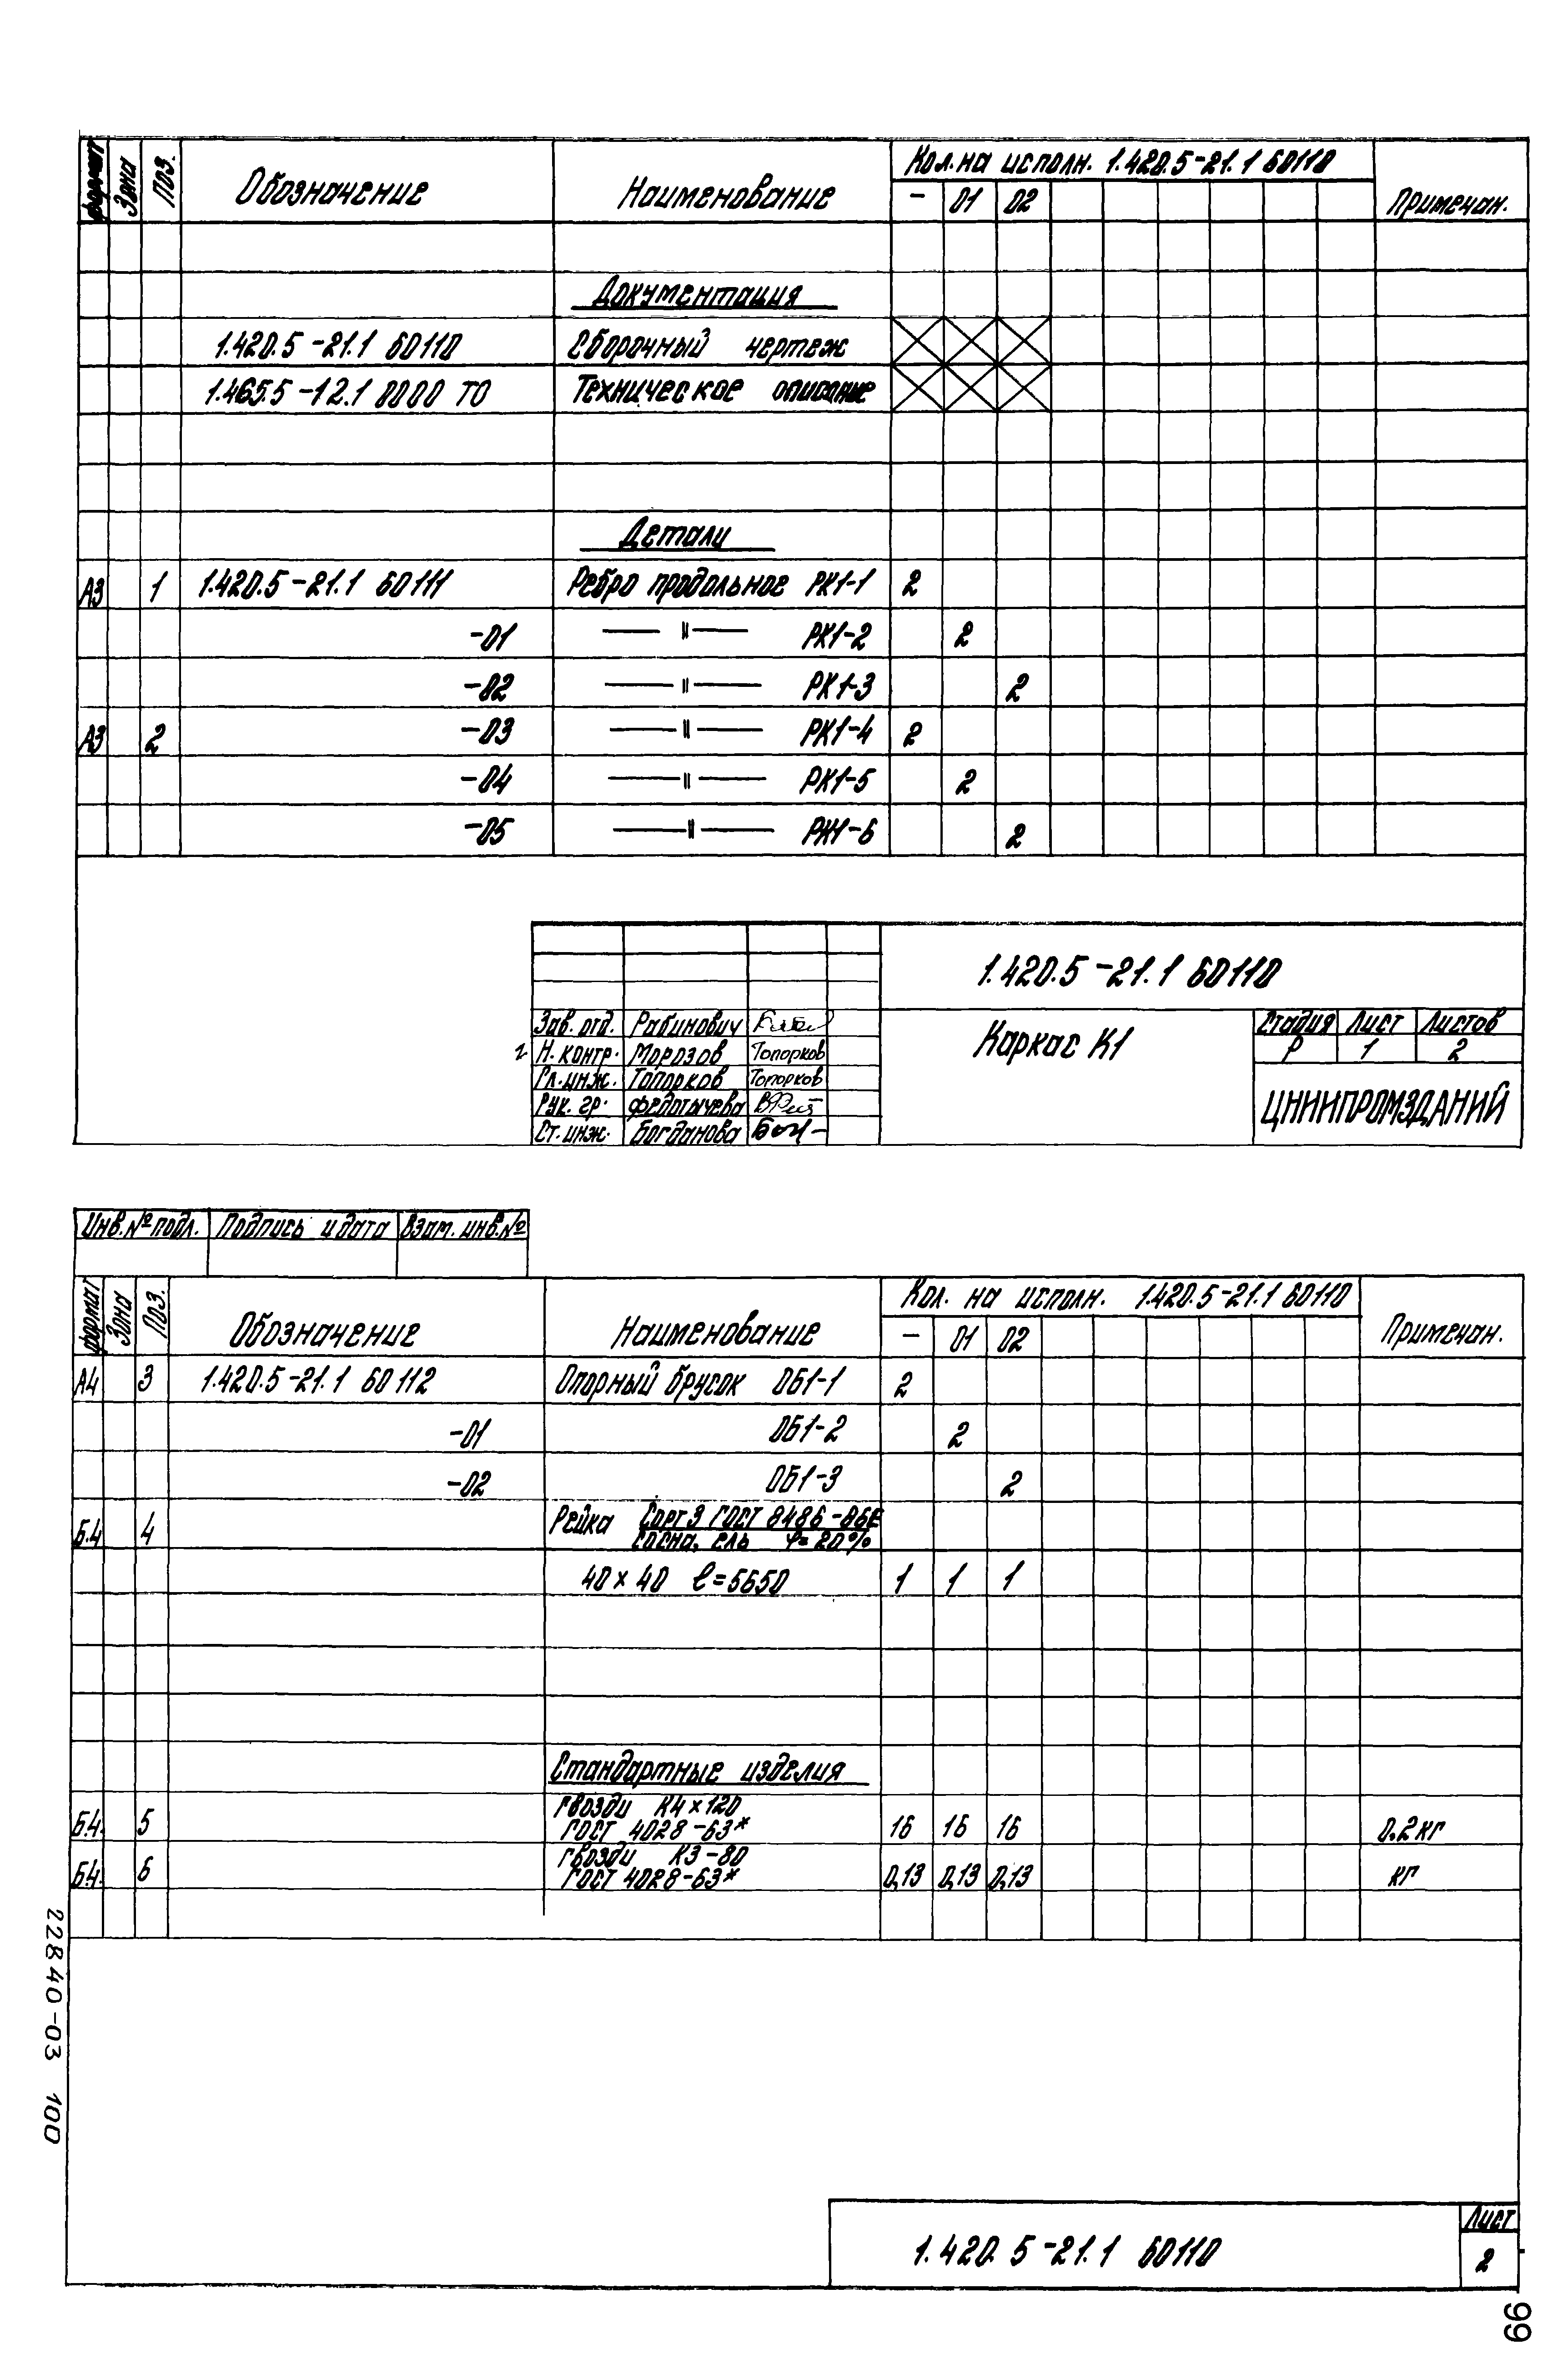 Формат Зона Поз. Обозначение Наименование Кол. на исполн. 1.420.5-21.1 60110 Примечан.
- 01 02
Документация
1.420.5-21.1 60110 Сборочный чертеж
1.465.5-12.1 0000 ТО Техническое описание
Детали
А3 1 1.420.5-21.1 60111 Ребро продольное РК1-1 2
-01 —— " —— РК1-2 2
-02 —— " —— РК1-3 2
А3 2 -03 —— " —— РК1-4 2
-04 —— " —— РК1-5 2
-05 —— " —— РК1-6 2
1.420.5-21.1 60110
Зав. отд. Рабинович
Н. контр. Морозов Топорков
Гл. инж. Топорков Топорков
Рук. гр. Федотычева
Ст. инж. Богданова
Каркас К1
Стадия Лист Листов
Р 1 2
ЦНИИПРОМЗДАНИЙ
Инв. № подл. Подпись и дата Взам. инв. №
Формат Зона Поз. Обозначение Наименование Кол. на исполн. 1.420.5-21.1 60110 Примечан.
- 01 02
А4 3 1.420.5-21.1 60112 Опорный брусок ОБ1-1 2
-01 ОБ1-2 2
-02 ОБ1-3 2
Б.4 4 Рейка Сорт 3 ГОСТ 8486-86Е
сосна, ель φ=20%
40×40 ℓ=5650 1 1 1
Стандартные изделия
Гвозди К4×120
Б.4. 5 ГОСТ 4028-63* 16 16 16 0.2 кг
Гвозди К3-80
Б.4. 6 ГОСТ 4028-63* 0,13 0,13 0,13 кг
22840-03 100
1.420.5-21.1 60110
Лист
2
99